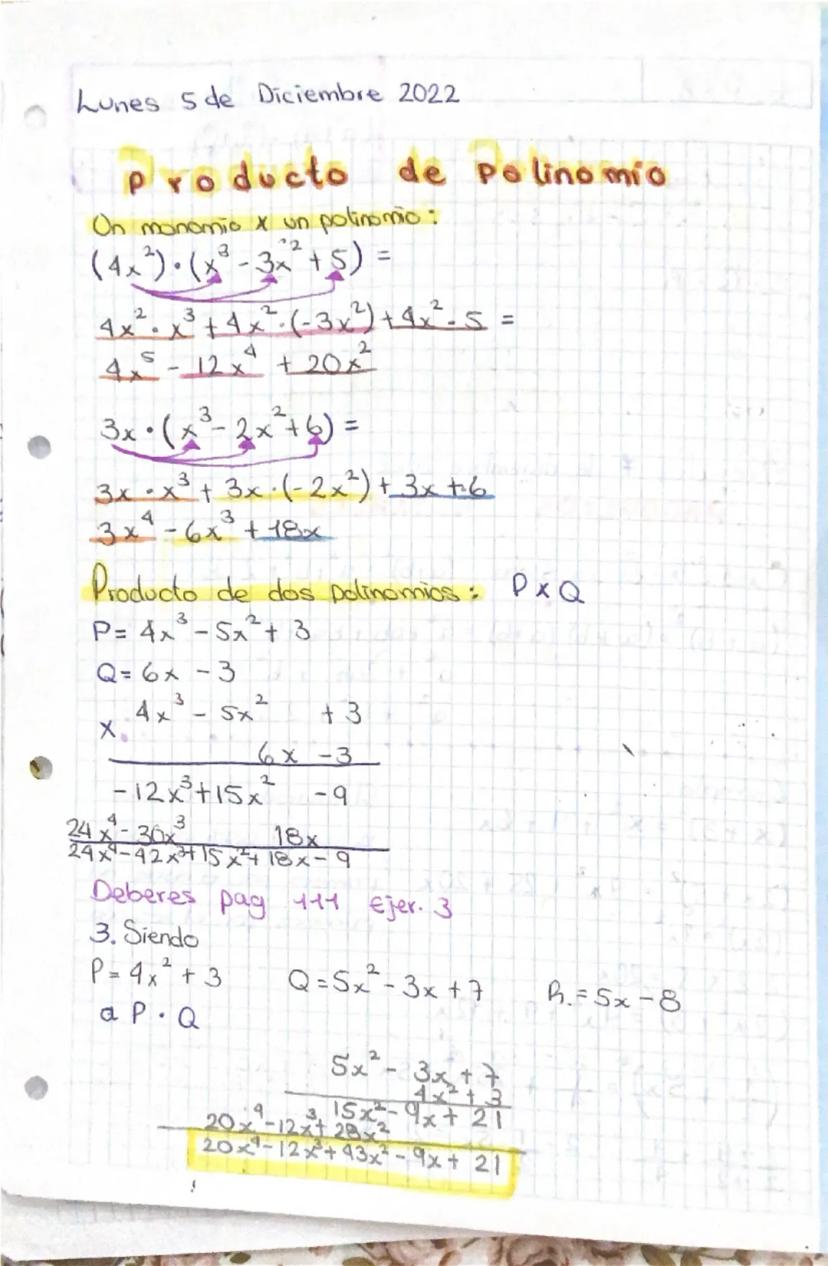 Lunes 5 de Diciembre 2022
Producto de Polinomio
Un monomio x un polinomio:
(4x²)·(x³ - 3x² + 5) =
4x²·x³ + 4x²·(-3x²) + 4x²·5 =
4x⁵ - 12x⁴ + 20x²
3x·(x³ - 2x² + 6) =
3x·x³ + 3x·(-2x²) + 3x + 6
3x⁴ - 6x³ + 18x
Producto de dos polinomios: P x Q
P = 4x³ - 5x² + 3
Q = 6x - 3
x 4x³ - 5x² + 3
6x - 3
-12x³ + 15x² - 9
24x⁴ - 30x³ 18x
24x⁴ - 42x³ + 15x² + 18x - 9
Deberes pag 111 Ejer. 3
3. Siendo
P = 4x² + 3 Q = 5x² - 3x + 7 R. = 5x - 8
a P · Q
5x² - 3x + 7
4x² + 3
15x² - 9x + 21
20x⁴ - 12x³ + 28x²
20x⁴ - 12x³ + 43x² - 9x + 21